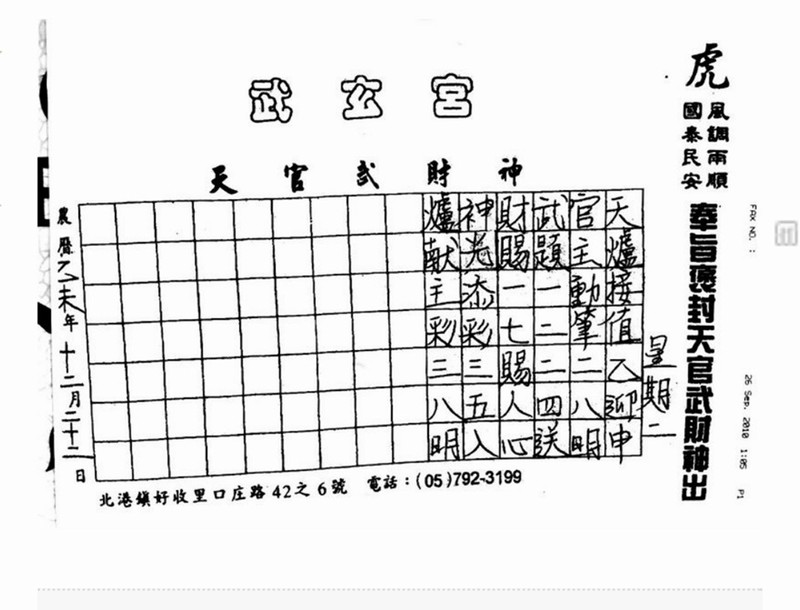 武玄宮
天官武財神
FAX NO. : 26 Sep. 2010 1:05 P1
虎
風調雨順
國泰民安
奉旨褒封天官武財神出
星期二
天爐接值乙迎申
官主動肇二八明
武題一二二四送
財賜一七賜人心
神光添彩三五入
爐献主彩三八明
農曆乙未年十二月二十二日
北港鎮好收里口庄路42之6號 電話：(05)792-3199